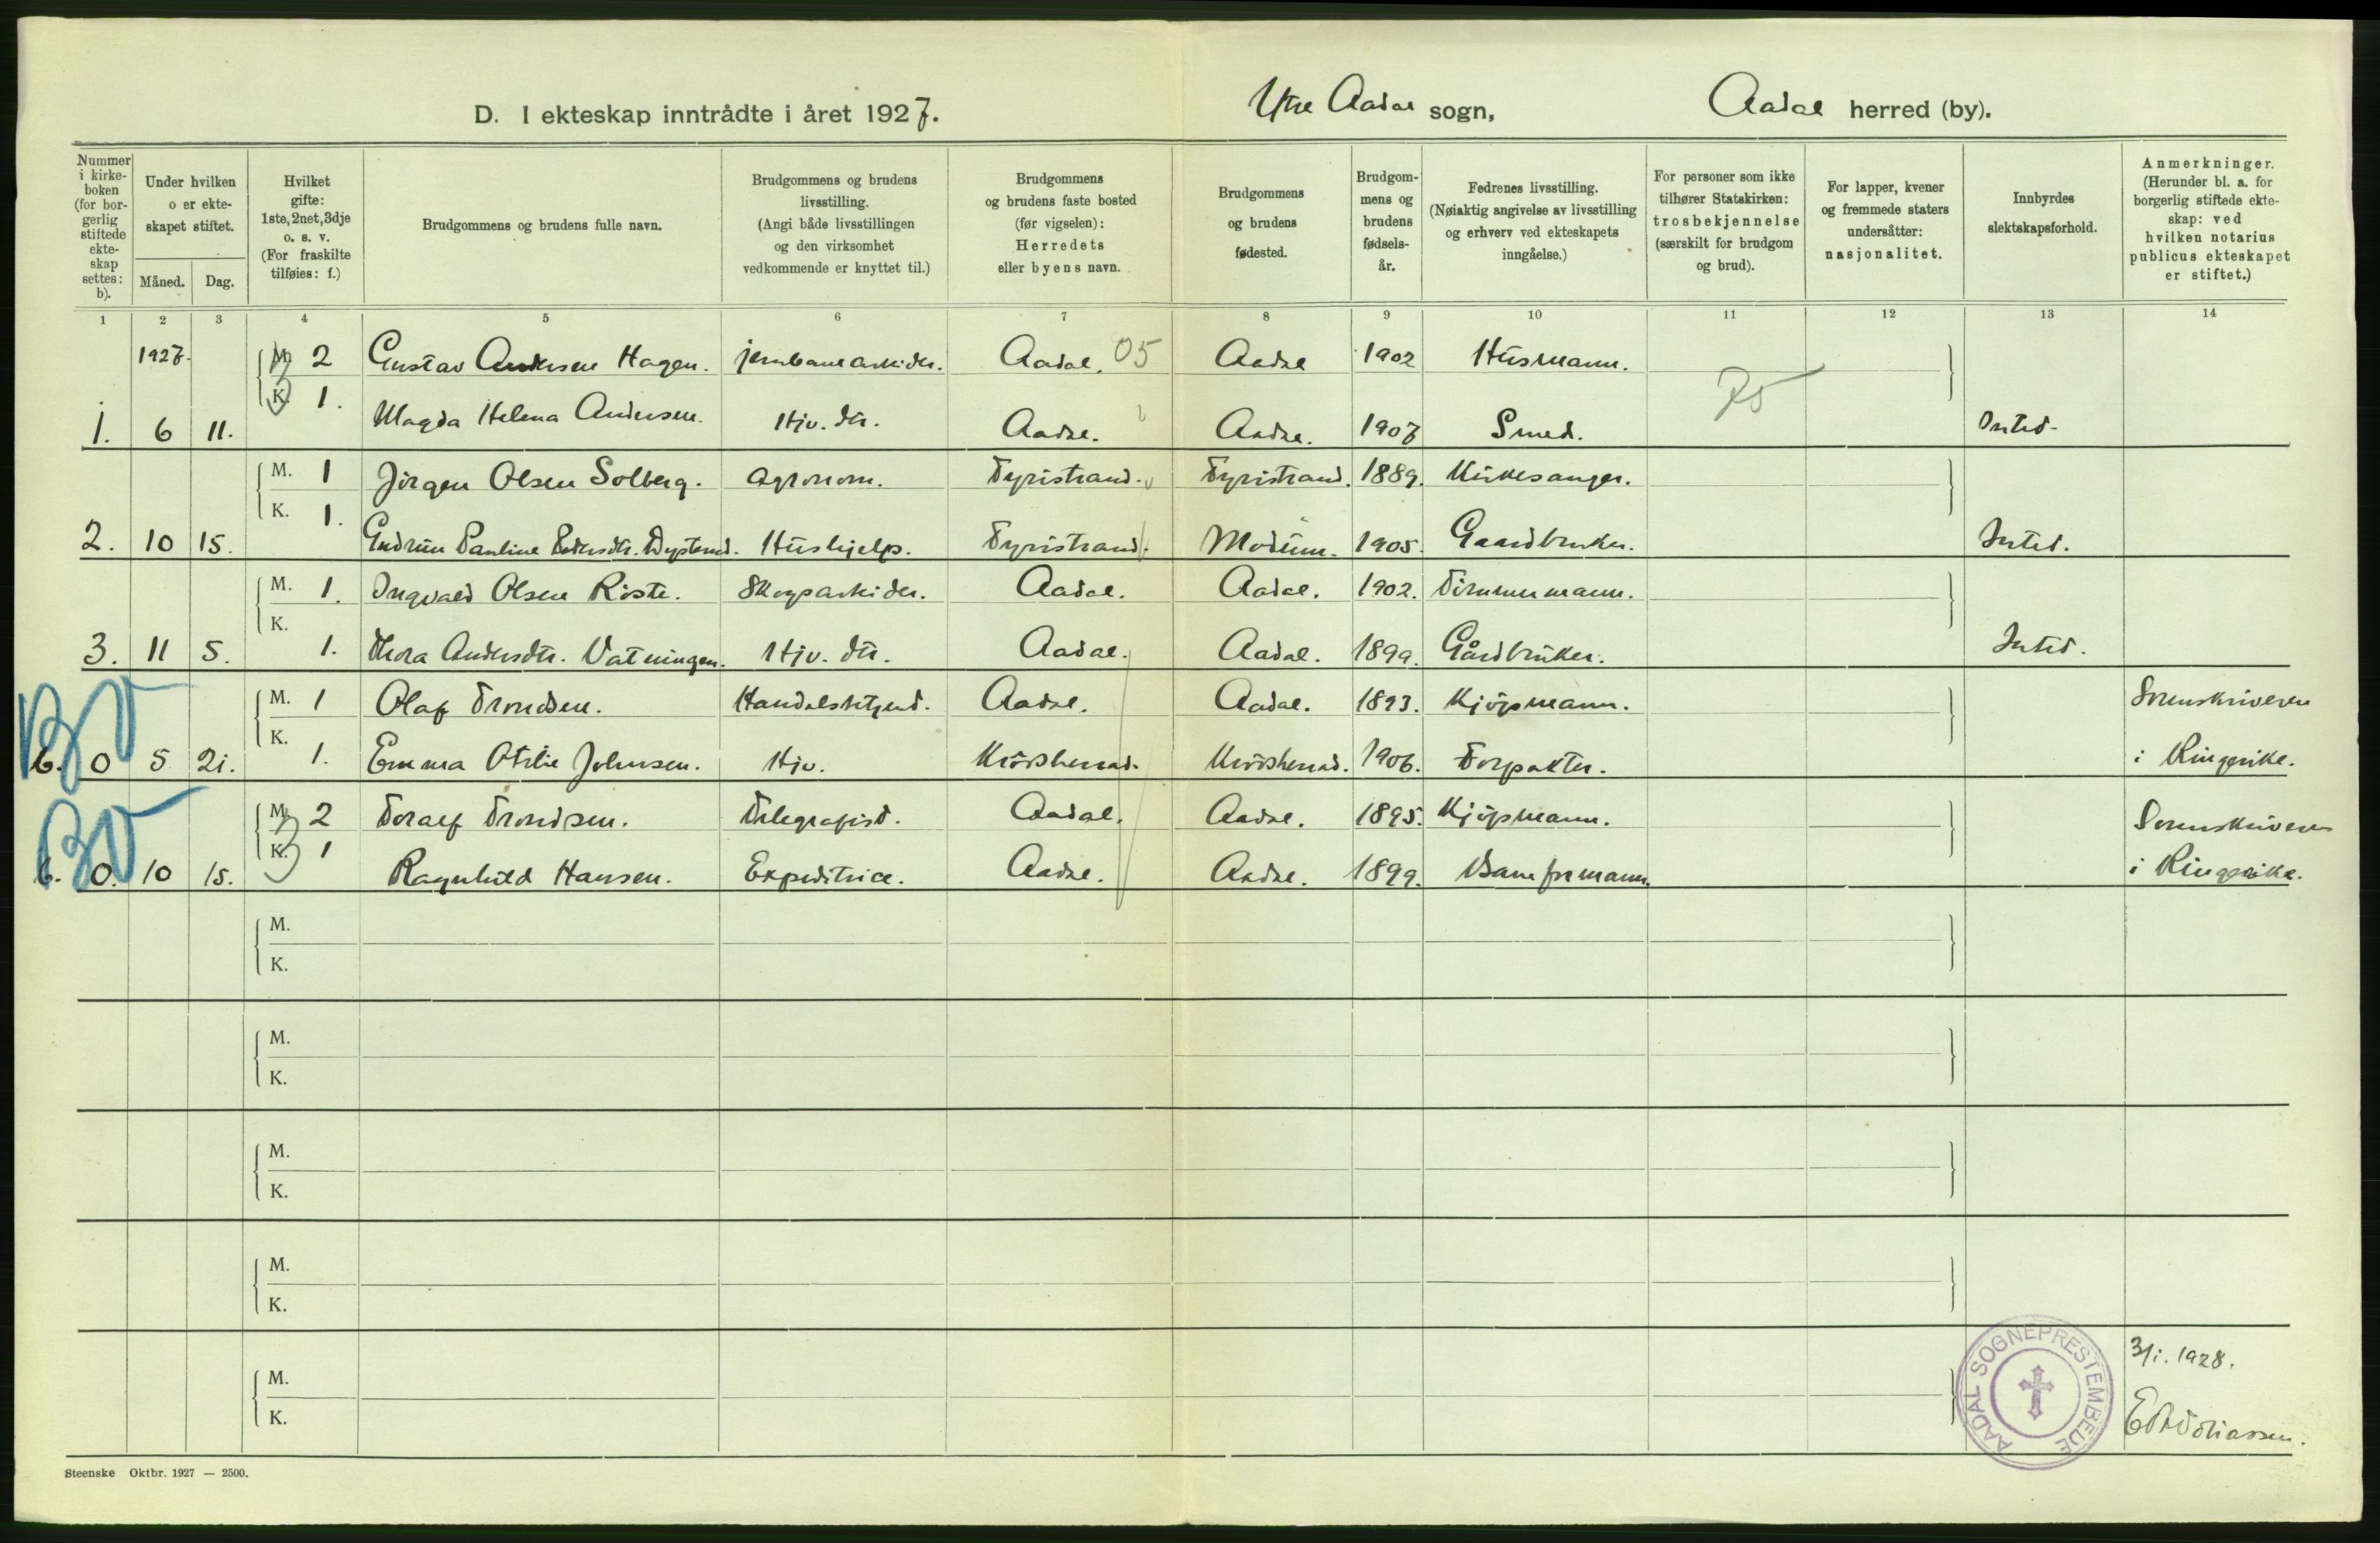 D. I ekteskap inntrådte i året 1927.
Ytre Aadal sogn,
Aadal herred (by).
Nummer i kirke-boken (for bor-gerlig stiftede ekte-skap settes: b).
Under hvilken o er ekte-skapet stiftet.
Måned. Dag.
Hvilket gifte: 1ste, 2net, 3dje o. s. v. (For fraskilte tilføies: f.)
Brudgommens og brudens fulle navn.
Brudgommens og brudens livsstilling. (Angi både livsstillingen og den virksomhet vedkommende er knyttet til.)
Brudgommens og brudens faste bosted (før vigselen): Herredets eller byens navn.
Brudgommens og brudens fødested.
Brudgom-mens og brudens fødsels-år.
Fedrenes livsstilling. (Nøiaktig angivelse av livsstilling og erhverv ved ekteskapets inngåelse.)
For personer som ikke tilhører Statskirken: trosbekjennelse (særskilt for brudgom og brud).
For lapper, kvener og fremmede staters undersåtter: nasjonalitet.
Innbyrdes slektskapsforhold.
Anmerkninger. (Herunder bl. a. for borgerlig stiftede ekte-skap: ved hvilken notarius publicus ekteskapet er stiftet.)
1 2 3 4 5 6 7 8 9 10 11 12 13 14
1927. M. 2 Gustav Andersen Hagen. jernbanearbider. Aadal. 05 Aadal 1902 Husmann.
1. 6 11. K. 1. Magda Helena Andersen. Hjv. dtr. Aadal. Aadal. 1907 Smed. Intet.
M. 1 Jörgen Olsen Solberg. agronom. Tyristrand. Tyristrand. 1889. Kirkesanger.
2. 10 15. K. 1. Gudrun Pauline Pedersdtr. Hushjelp. Tyristrand. Modum. 1905. Gaardbruker. Intet.
M. 1. Ingvald Olsen Röste. Skogsarbider. Aadal. Aadal. 1902. Tömmermann.
3. 11 5. K. 1. Thora Andersdtr. Vatningen. Hjv. dtr. Aadal. Aadal. 1899. Gårdbruker. Intet.
M. 1 Olaf Trondsen. Handelsbetjent. Aadal. Aadal. 1893. Kjöpmann. Sorenskriveren
b. 0 5 21. K. 1. Emma Otilie Johnsen. Hjv. Krödsherad. Krödsherad. 1906. Forpakter. i Ringerike.
M. 2 Toralf Trondsen. Telegrafist. Aadal. Aadal. 1895. Kjöpmann. Sorenskriveren
b. 0. 10 15. K. 1 Ragnhild Hansen. Expeditrice. Aadal. Aadal. 1899. Baneformann. i Ringerike.
M.
K.
M.
K.
M.
K.
M.
K.
M.
K.
AADAL SOGNEPRESTEMBEDE
3/1. 1928.
Steenske Oktbr. 1927 — 2500.